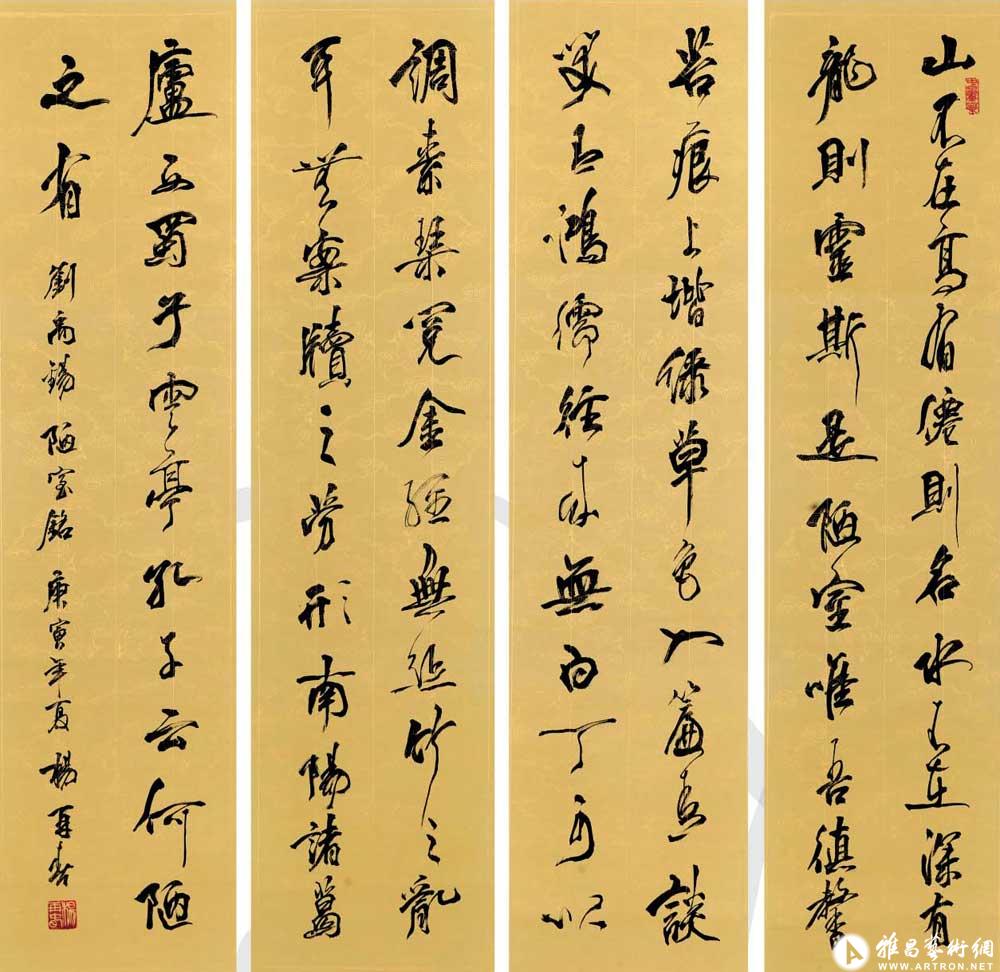 山不在高有僊則名水不在深有
龍則靈斯是陋室唯吾德馨
苔痕上堦綠草色入簾青談
笑有鴻儒往來無白丁可以
調素琴閱金經無絲竹之亂
耳無案牘之勞形南陽諸葛
廬西蜀子雲亭孔子云何陋
之有 劉禹錫 陋室銘 庚寅年夏 楊再春
雅昌藝術網
WWW.ARTRON.NET